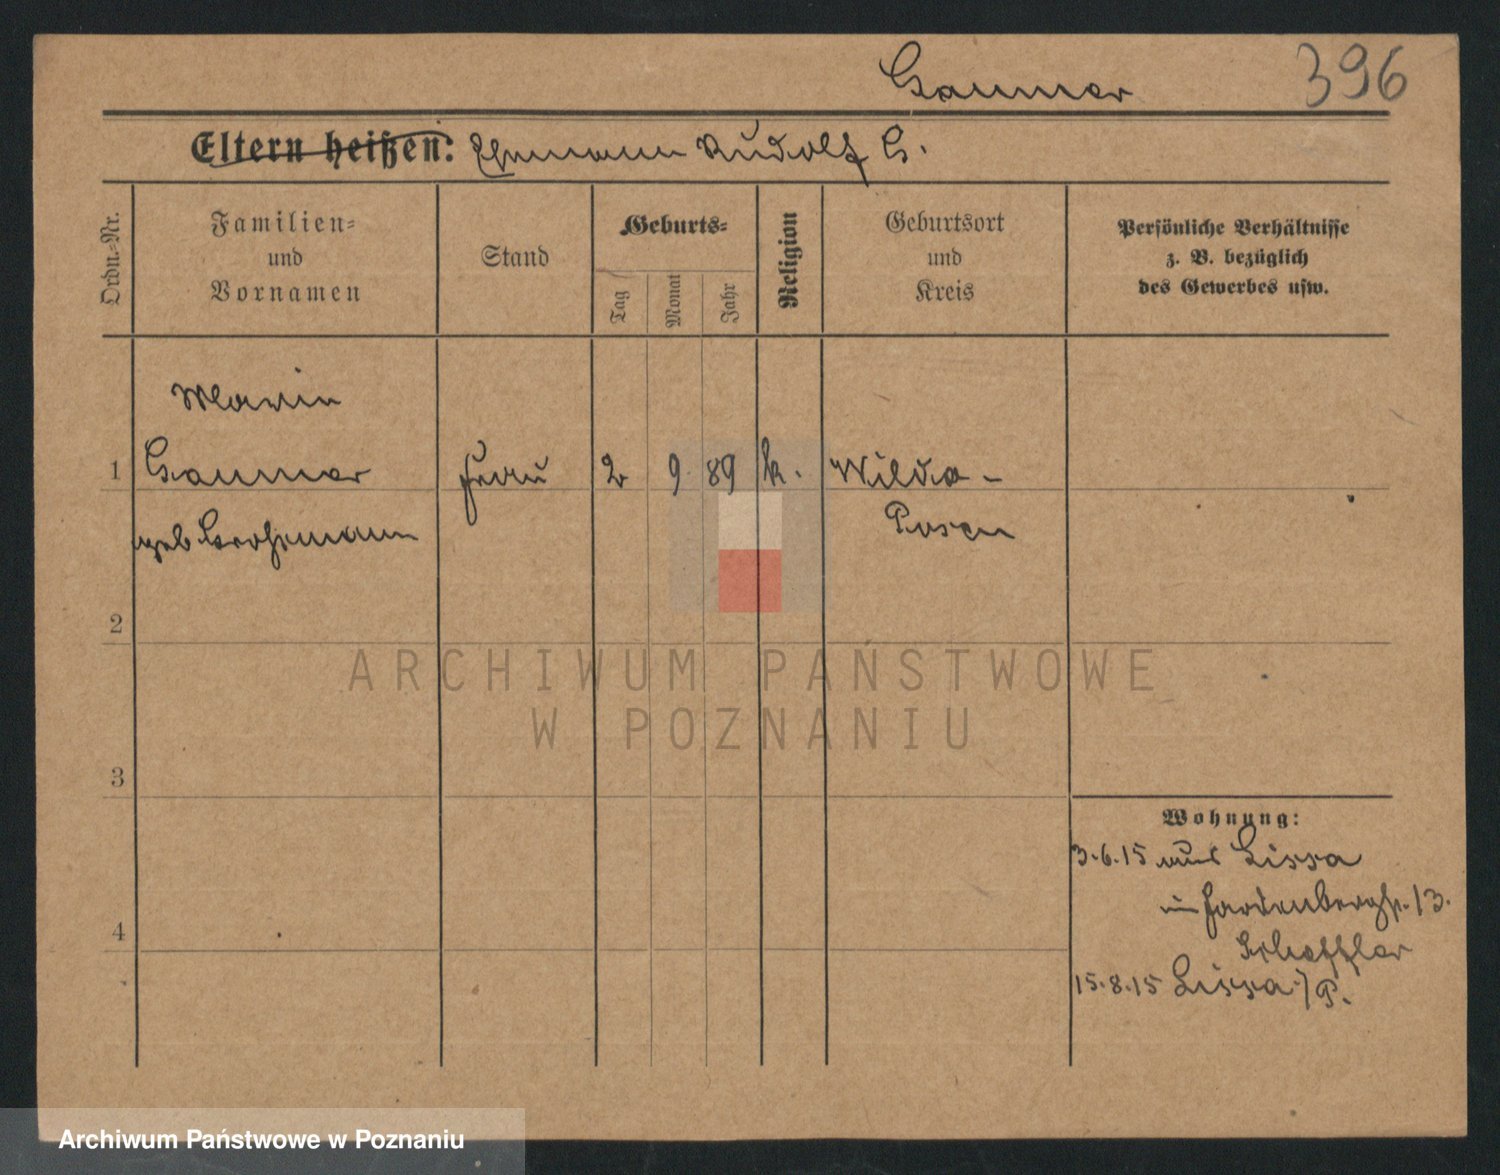 Gaumer
396
Eltern heißen: Ehemann Rudolf G.
Ordn.-Nr.
Familien-
und
Vornamen
Stand
Geburts-
Tag
Monat
Jahr
Religion
Geburtsort
und
Kreis
Persönliche Verhältnisse
z. B. bezüglich
des Gewerbes usw.
1
Maria
Gaumer
geb. Grossmann
Frau
2
9.
89
k.
Wilda -
Posen
2
3
4
Wohnung:
3.6.15 aus Lissa
in Hardenbergstr. 13.
15.8.15 Lissa i/P.
ARCHIWUM PAŃSTWOWE
W POZNANIU
Archiwum Państwowe w Poznaniu